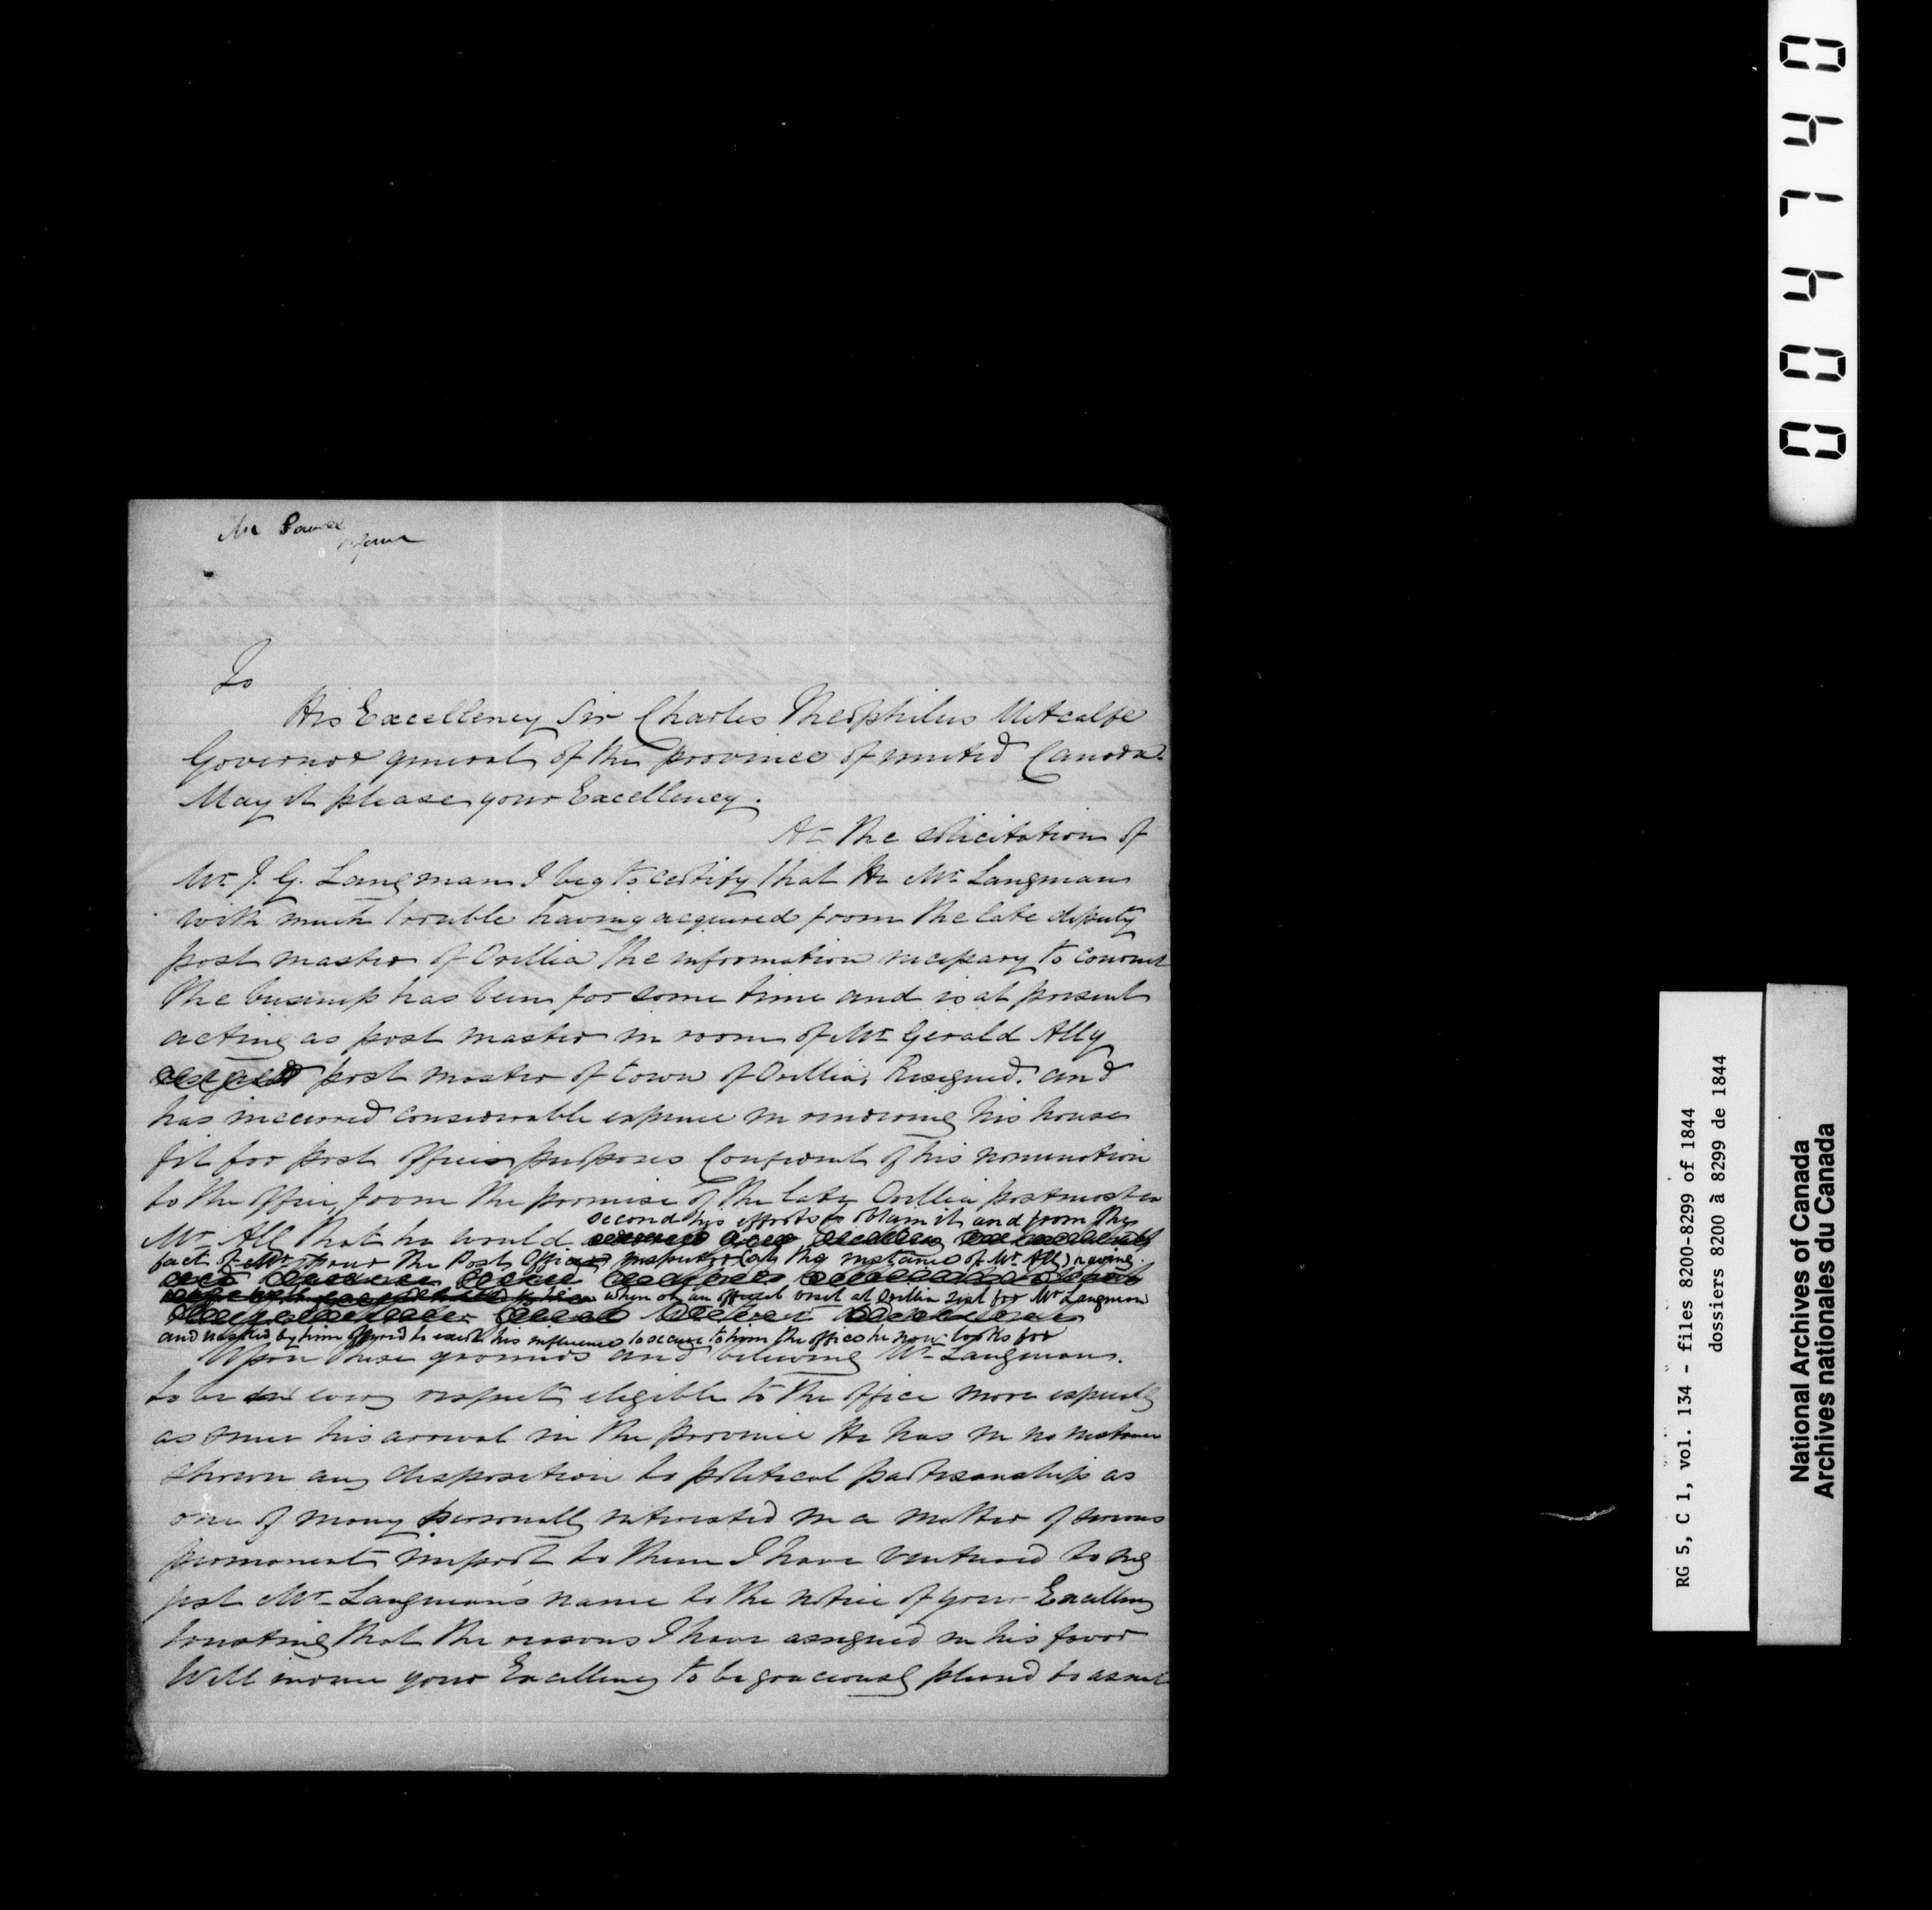 To
His Excellency Sir Charles Theophilus Metcalfe
Governor general of the province of united Canada
May it please your Excellency.
At the solicitation of
Mr. J. G. Langman I beg to certify that He Mr. Langman
with much trouble having acquired from the late deputy
post master of Orillia the information necessary to conduct
the business has been for some time and is at present
acting as post master in room of Mr Gerald Ally
post master of town of Orillia, Resigned. and
has incurred considerable expence in rendering his house
fit for post office purposes Confident of his nomination
to the office, from the promise of the late Orillia postmaster
Mr. All that he would second his efforts to obtain it and from the
fact of Mr the Post Office (at the instance of Mr. All) having
when on an official visit at Orillia sent for Mr Langman
and by him offered to exert his influence to secure to him the office he now looks for
Upon these grounds and believing Mr. Langman.
to be in every respect eligible to the office more especially
as since his arrival in the province He has in no instance
shown any disposition to political partisanship as
one of many personally interested in a matter of serious
permanent import to them I have ventured to sug
gest Mr. Langman's name to the notice of your Excellency
trusting that the reasons I have assigned in his favor
Will induce your Excellency to be graciously pleased to assent
04740
RG 5, C 1, vol. 134 - files 8200-8299 of 1844
dossiers 8200 à 8299 de 1844
National Archives of Canada
Archives nationales du Canada